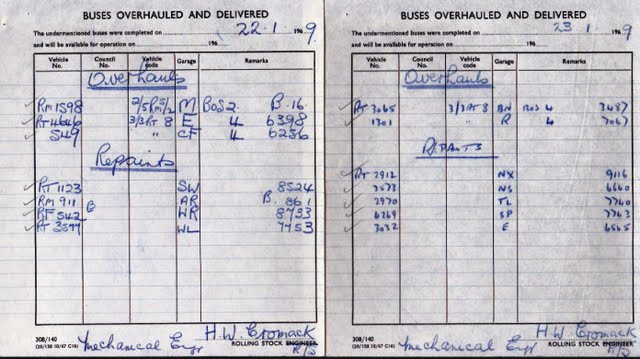 BUSES OVERHAULED AND DELIVERED
The undermentioned buses were completed on 22.1.1969
and will be available for operation on 196
Vehicle No. Council No. Vehicle code Garage Remarks
Overhauls
RM 1598 2/5 RM 5/2 M BOS 2. B.16.
RT 4646 3/3 RT 8 E 4 6398
549 " CF 4 6236
Repaints
RT 1123 SW 8524
RM 911 B AR B. 861
RF 542 WR 8733
RT 3597 WL 7453
H.W. Cromack
308/140
(20/150 10/67 C16) Mechanical Engr ROLLING STOCK ENGINEER R/S
BUSES OVERHAULED AND DELIVERED
The undermentioned buses were completed on 23 1 1969
and will be available for operation on 196
Vehicle No. Council No. Vehicle code Garage Remarks
Overhauls
RT 3065 3/3 RT 8 BN ROS 4 3487
1301 " R 4 7067
RT 2912 NX 9116
NS 6660
2970 TL 7760
SP 7763
3032 E 6565
H.W. Cromack
308/140
(20/150 10/67 C16) Mechanical Engr ROLLING STOCK ENGINEER R/S